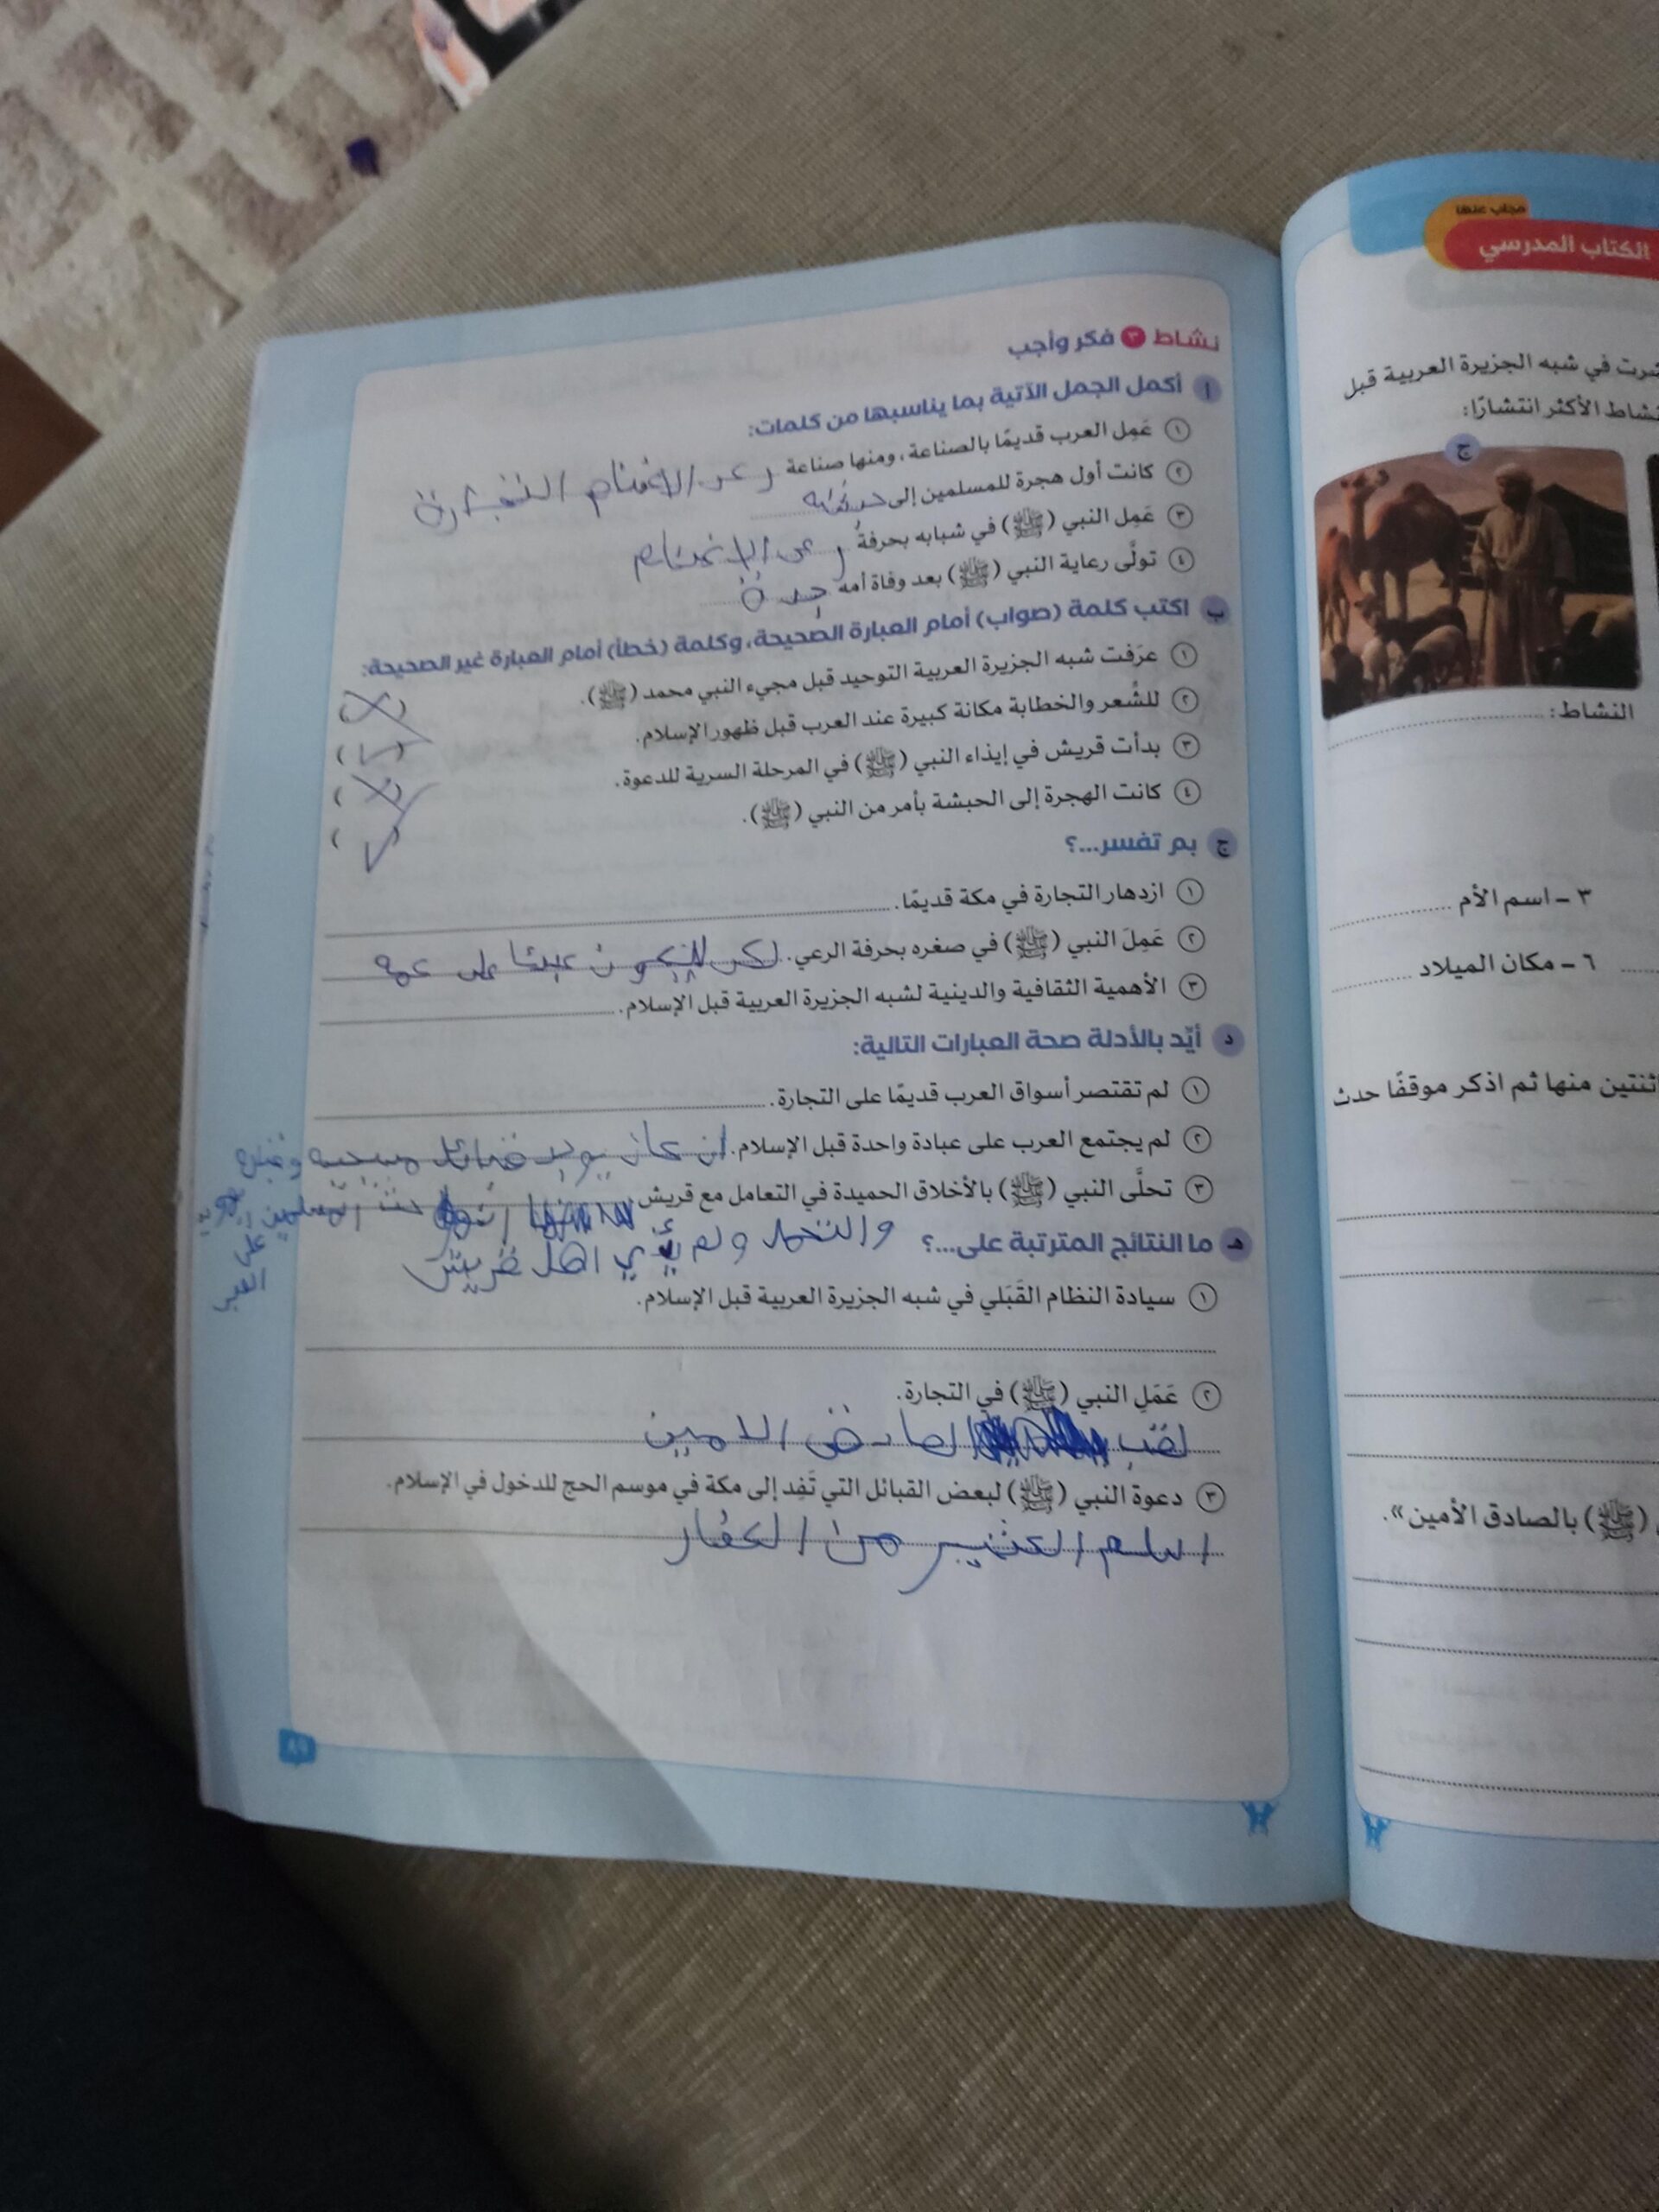 نشاط ٣ فكر وأجب
أ أكمل الجمل الآتية بما يناسبها من كلمات:
١ عَمِل العرب قديمًا بالصناعة، ومنها صناعة رعى الاغنام التجارة
٢ كانت أول هجرة للمسلمين إلى
٣ عَمِل النبي (ﷺ) في شبابه بحرفة رعى الاغنام
٤ تولَّى رعاية النبي (ﷺ) بعد وفاة أمه جدة
ب اكتب كلمة (صواب) أمام العبارة الصحيحة، وكلمة (خطأ) أمام العبارة غير الصحيحة:
١ عرَفت شبه الجزيرة العربية التوحيد قبل مجيء النبي محمد (ﷺ). (X)
٢ للشعر والخطابة مكانة كبيرة عند العرب قبل ظهور الإسلام. (✓)
٣ بدأت قريش في إيذاء النبي (ﷺ) في المرحلة السرية للدعوة. (X)
٤ كانت الهجرة إلى الحبشة بأمر من النبي (ﷺ). (✓)
ج بم تفسر...؟
١ ازدهار التجارة في مكة قديمًا.
٢ عَمِلَ النبي (ﷺ) في صغره بحرفة الرعي. لكى لايكون عبئا على عمه
٣ الأهمية الثقافية والدينية لشبه الجزيرة العربية قبل الإسلام.
د أيِّد بالأدلة صحة العبارات التالية:
١ لم تقتصر أسواق العرب قديمًا على التجارة.
٢ لم يجتمع العرب على عبادة واحدة قبل الإسلام. ان كان يوجد قبائل مسيحيه وقبائل يهودية
٣ تحلَّى النبي (ﷺ) بالأخلاق الحميدة في التعامل مع قريش. حث المسلمين على الصبر
والتحمل ولم يؤذي اهل قريش
هـ ما النتائج المترتبة على...؟
١ سيادة النظام القَبَلي في شبه الجزيرة العربية قبل الإسلام.
٢ عَمَلِ النبي (ﷺ) في التجارة.
لقب الصادق الامين
٣ دعوة النبي (ﷺ) لبعض القبائل التي تَفِد إلى مكة في موسم الحج للدخول في الإسلام.
اسلم الكثير من الكفار
٨٩
مجاب عنها
الكتاب المدرسي
في شبه الجزيرة العربية قبل
الأكثر انتشارًا:
ج
النشاط:
٣ - اسم الأم
٦ - مكان الميلاد
اثنتين منها ثم اذكر موقفًا حدث
(ﷺ) بالصادق الأمين».